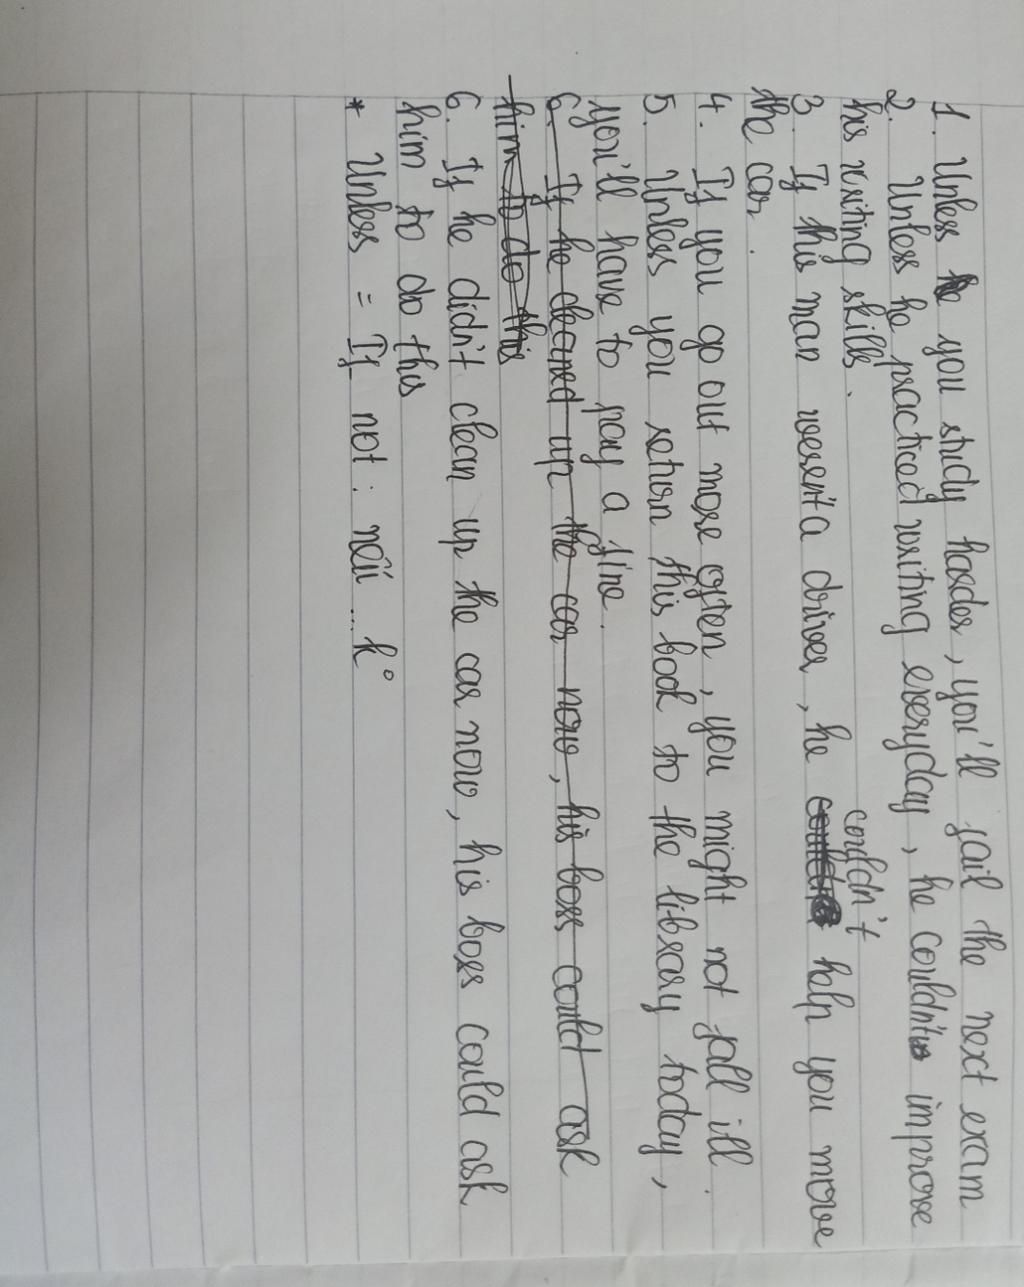 1. Unless you study harder, you'll fail the next exam
2. Unless he practiced writing everyday, he couldn't improve
his writing skills.
3. If this man weren't a driver, he couldn't help you move
the car.
4. If you go out more often, you might not fall ill.
5. Unless you return this book to the library today,
you'll have to pay a fine.
6. If he cleaned up the car now, his boss could ask
him to do this
6. If he didn't clean up the car now, his boss could ask
him to do this
* Unless = If not : nếu ... k°